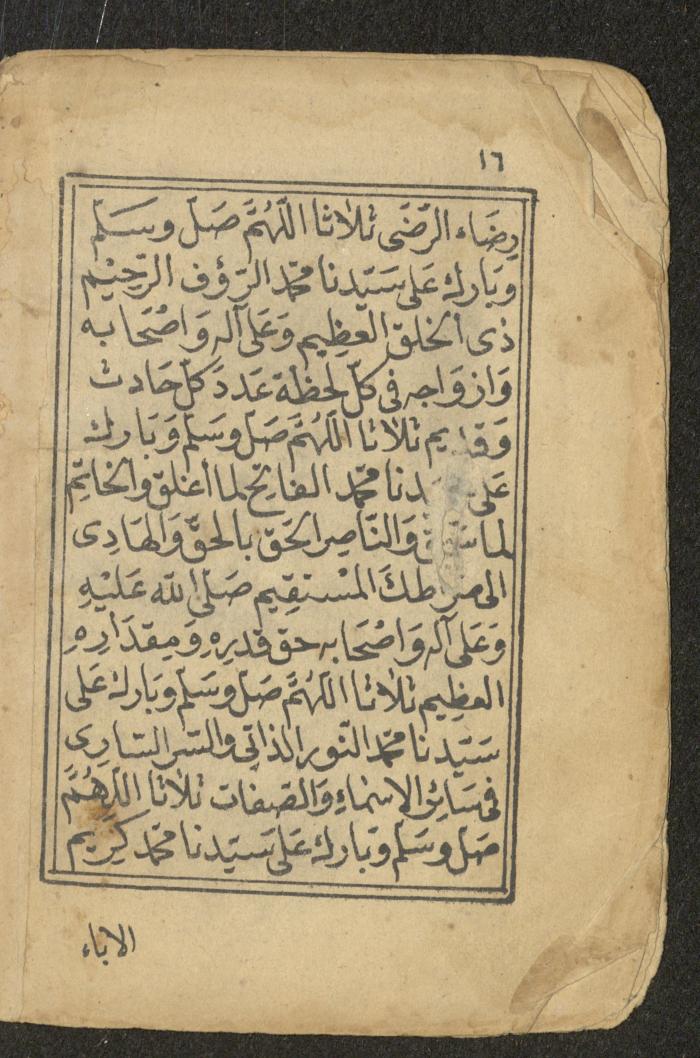 ١٦
رِضَاء الرِّضَى ثلاثا اللّهُمَّ صَلّ وسَلّم
وبَارك عَلى سَيّدنا محمّد الرّؤف الرّحِيْم
ذى الخلق العَظِيم وَعَلى آله وَاصْحَابه
وَازوَاجه فى كلّ لحظة عَددَ كلّ حَادث
وَقديم ثلاثا اللّهُمَّ صَلّ وسَلّم وَبَارك
عَلى سيدنا محمّد الفاتح لما أغلق والخاتِم
لما سبق وَالنّاصِر الحَق بالحقّ وَالهَادِى
الى صراطكَ المسْتقِيم صَلّى الله عَليْهِ
وَعَلى آله وَاصْحَابه حق قدرِهِ وَمِقدَارِهِ
العظِيم ثلاثا اللّهُمَّ صَلّ وسَلّم وبَارك عَلى
سَيّدنا محمّد النّور الذاتى والسّر السّارِى
فى سَائِر الاسْمَاءِ وَالصّفات ثلاثا اللّهُمَّ
صَلّ وسَلّم وبَارك عَلى سَيّدنا محمّد كَرِيْم
الاباء